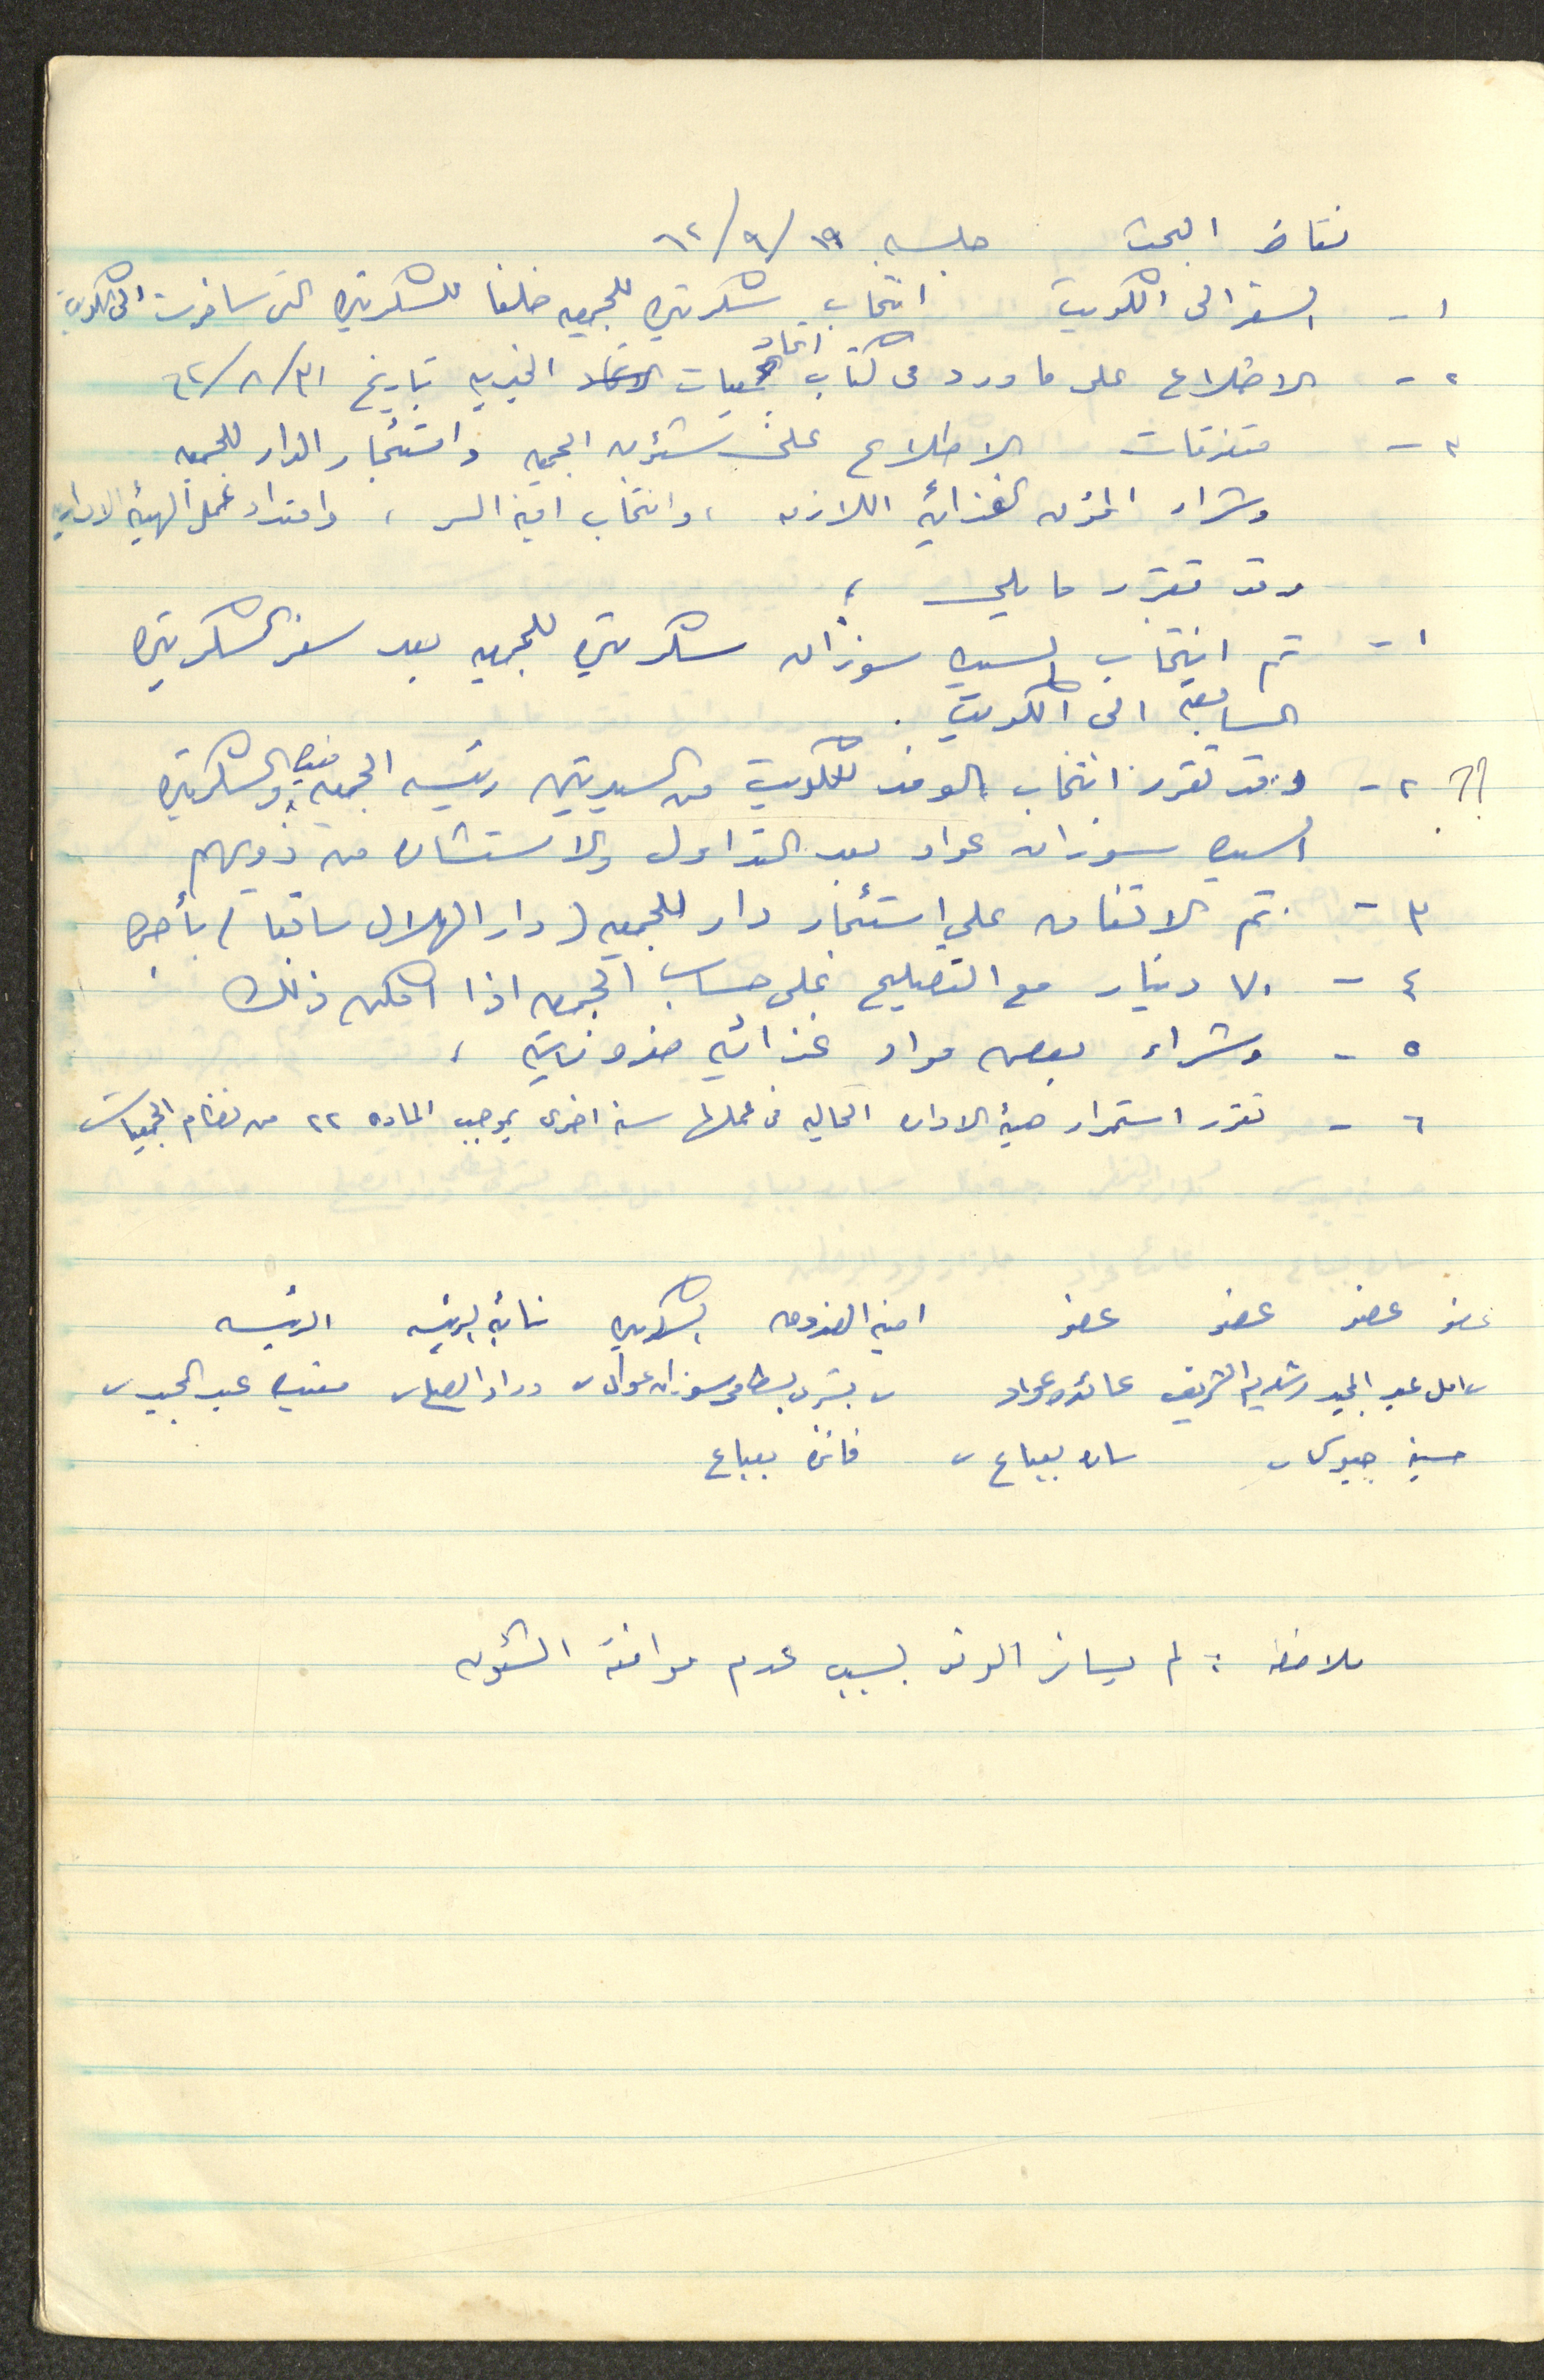 نقاط البحث جلسه ١٩/٩/٦٢
١- السفر الى الكويت انتخاب سكرتيره للجمعيه خلفا للسكرتيره التي سافرت الى الكويت
٢- الاطلاع على ما ورد في كتاب اتحاد الجمعيات الخيريه تاريخ ٣١/٨/٦٢
٣- متفرقات الاطلاع على شئون الجمعيه واستئجار الدار للجمعيه
وشراء المؤن الغذائيه اللازمه ، وانتخاب امينه السر ، وامتداد عمل الهيئه الاداريه
وقد تقرر ما يلي ؛
١- تم انتخاب السيده سوزان سكرتيره للجمعيه بعد سفر السكرتيره
السابقه الى الكويت .
؟؟ ٢- وقد تقرر انتخاب الوفد للكويت من السيدتين رئيسه الجمعيه مفيده والسكرتيره
السيده سوزان عواد بعد التداول والاستشاره من ذويهم
٣- تم الاتفاق على استئجار دار للجمعيه (دار الهلال سابقا) بأجره
٤- ٧٠ دينار مع التصليح على حساب الجمعيه اذا امكن ذلك .
٥- وشراء بعض مواد غذائيه ،
٦- تقرر استمرار هيئة الاداره الحاليه في عملها سنه اخرى بموجب الماده ٢٢ من نظام الجمعيات
عضو عضو عضو عضو امينه الصندوق السكرتيره نائبه الرئيسه الرئيسه
امل عبد المجيد الشريف عائده عواد بشرى بسطامي سوزان عواد وداد الصلح مفيده عبد المجيد
حسنيه جيوسي ساره بعباع فائزه بعباع
ملاحظه : لم يسافر الوفد بسبب عدم موافقة الشئون